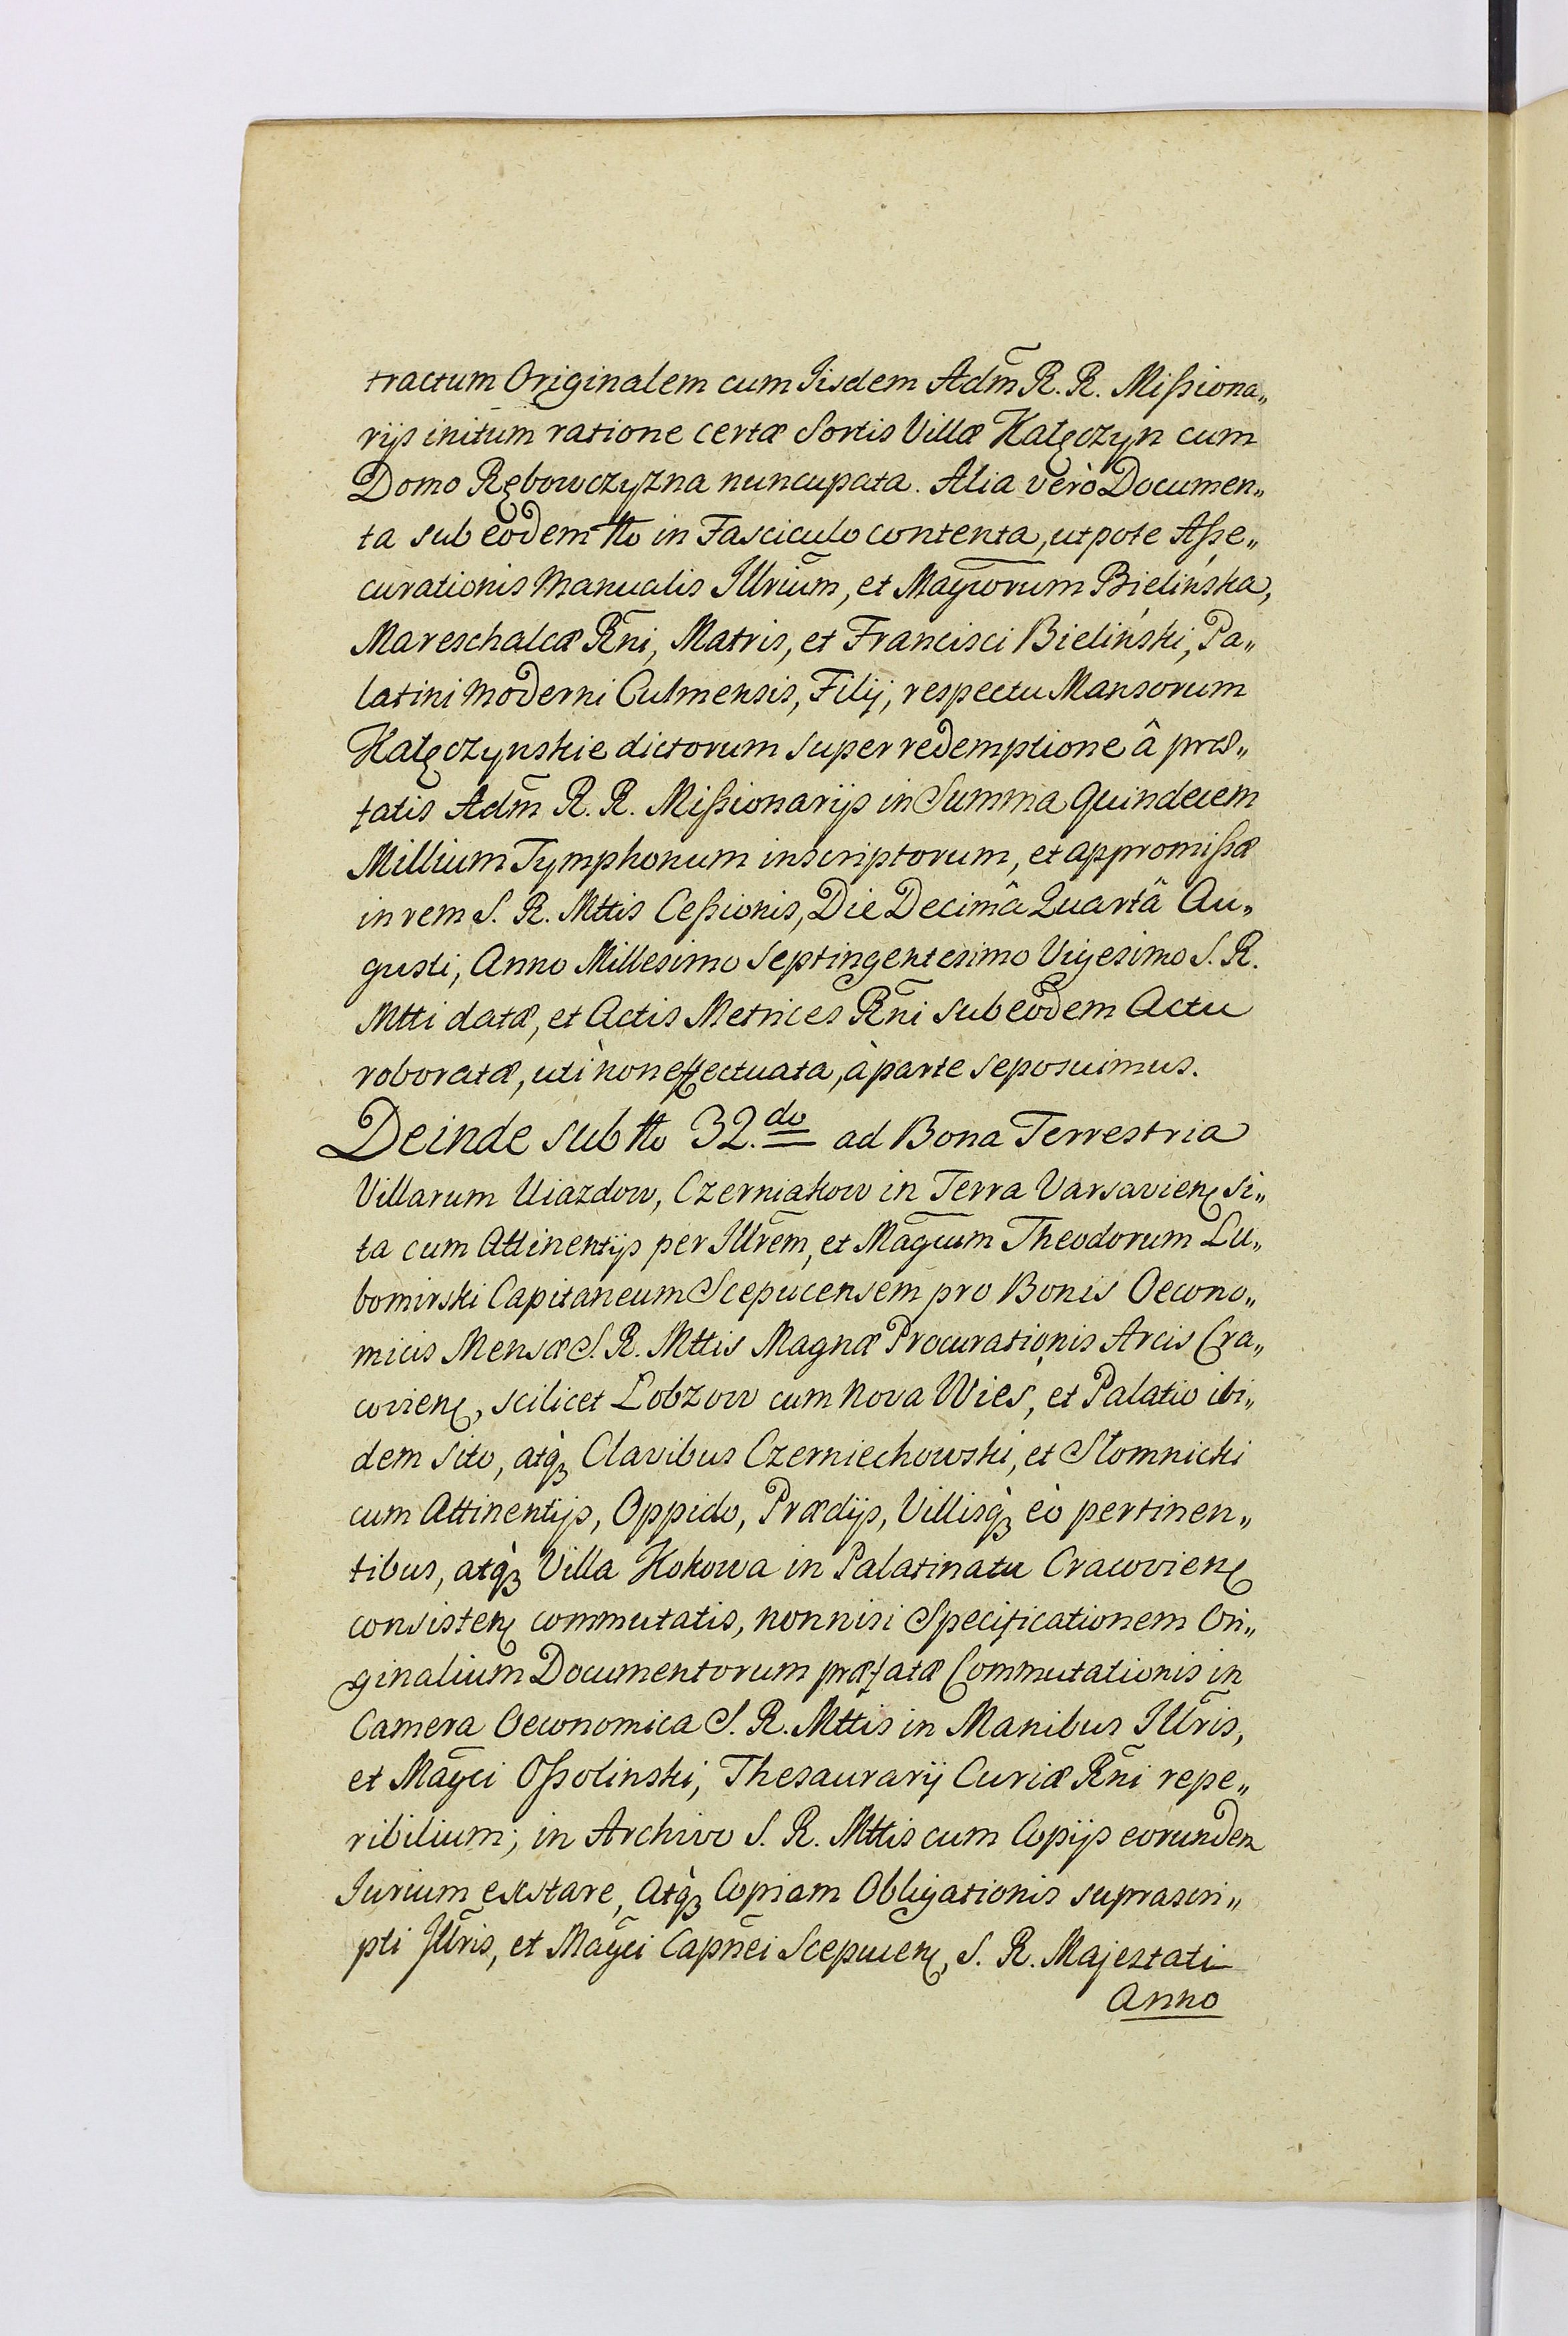 tractum Originalem cum Iisdem Adm̃ R. R. Missiona„
rijs initum ratione certæ Sortis Villæ Kałęczyn cum
Domo Rębowczyzna nuncupata. Alia verò Documen„
ta sub eodem No in Fasciculo contenta, utpote Asse„
curationis Manualis Illrium̃, et Magcorum Bielińska,
Mareschalcæ Rñi, Matris, et Francisci Bieliński, Pa„
latini moderni Culmensis, Filij, respectu Mansorum
Kałęczynskie dictorum super redemptione â præ„
fatis Adm̃ R. R. Missionarijs in Summa Quindecem
Millium Tymphonum inscriptorum, et appromissæ
in rem S. R. Mttis Cessionis, Die Decimâ Quartâ Au„
gusti, Anno Millesimo Septingentesimo Vigesimo S. R.
Mtti datæ, et Actis Metrices Rñi sub eodem Actu
roboratæ, uti non effectuata, à parte seposuimus.
Deinde sub No 32.do ad Bona Terrestria
Villarum Uiazdow, Czerniakow in Terra Varsavien̨ si„
ta cum Attinentijs per Illrem̃, et Magcum Theodorum Lu„
bomirski Capitaneum Scepucensem pro Bonis Oecono„
micis Mensæ S. R. Mttis Magnæ Procurationis Arcis Cra„
covien̨, scilicet Lobzow cum Nova Wieś, et Palatio ibi„
dem sito, atq̀ꝫ Clavibus Czerniechowski, et Słomnicki
cum Attinentijs, Oppido, Prædijs, Villisq̀ꝫ eò pertinen„
tibus, atq̀ꝫ Villa Kokowa in Palatinatu Cracovien̨
consisten̨ commutatis, nonnisi Specificationem Ori„
ginalium Documentorum præfatæ Commutationis in
Camera Oeconomica S. R. Mttis in Manibus Illr̃is,
et Magci Ossolinski, Thesaurarij Curiæ Rñi repe„
ribilium; in Archivo S. R. Mttis cum Copijs eorundem
Iurium exstare, Atq̀ꝫ Copiam Obligationis suprascri„
pti Illr̃is, et Magci Capnẽi Scepucen̨, S. R. Majestati
Anno